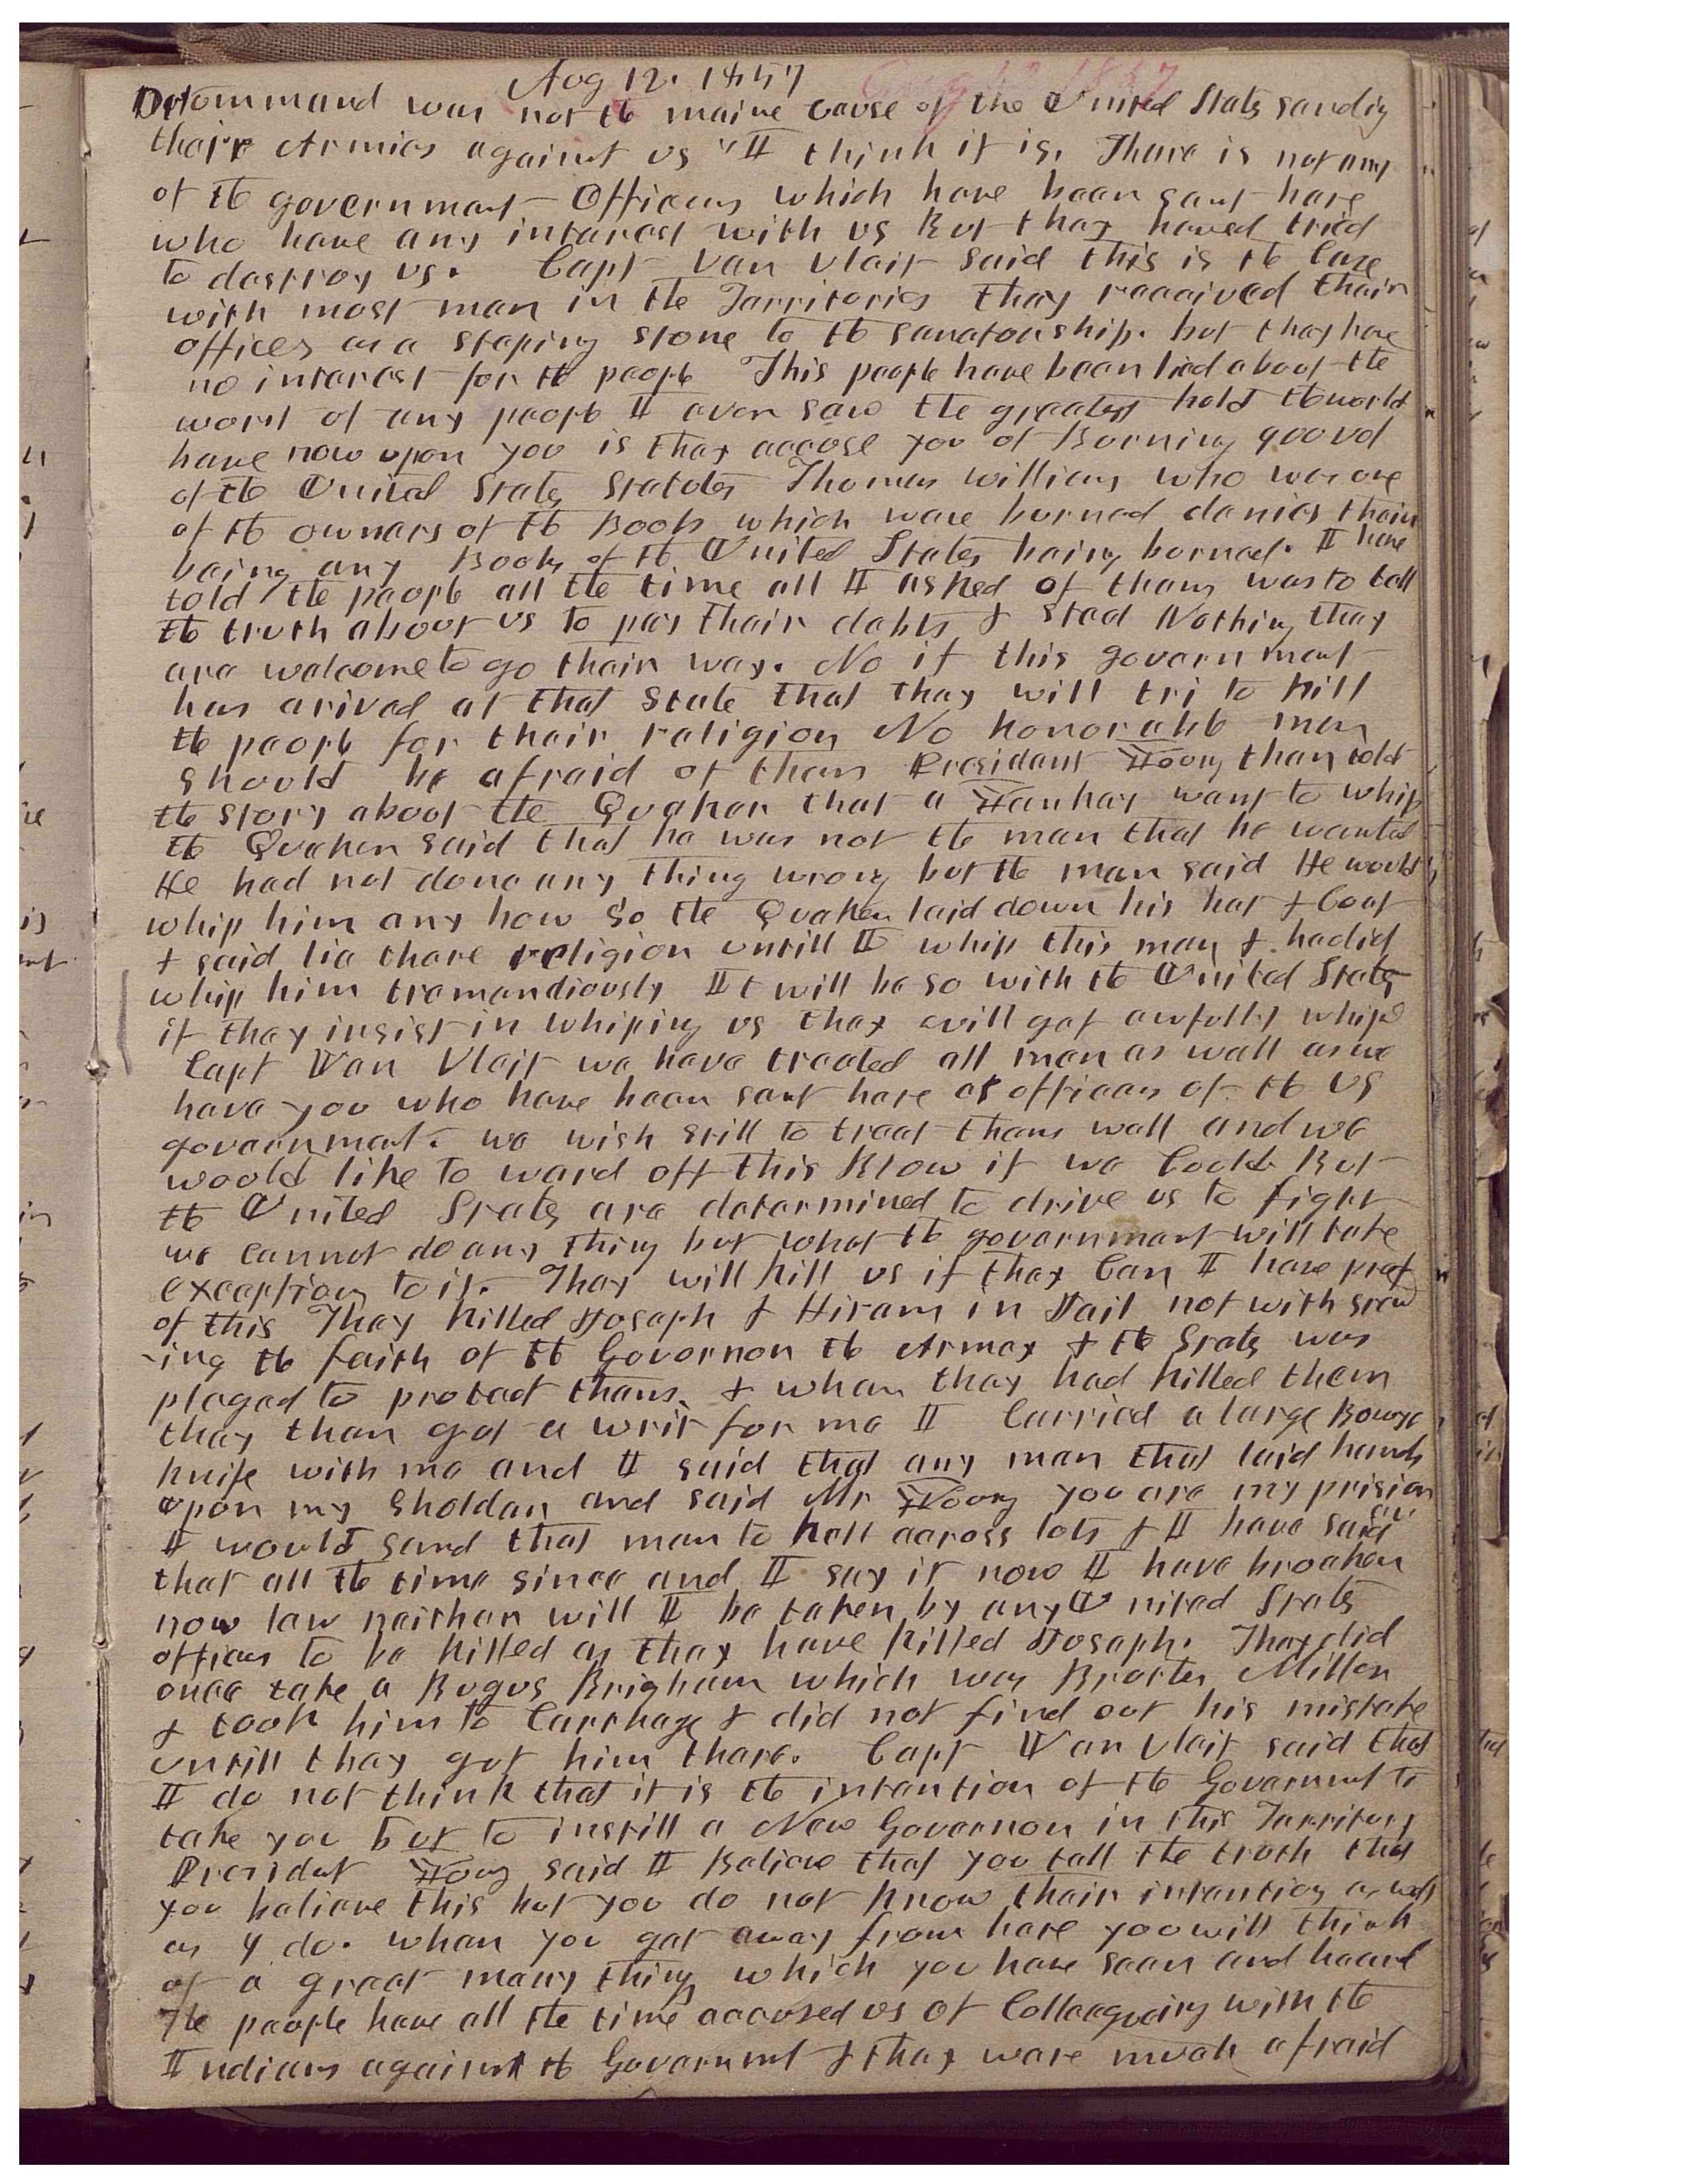 Aug 12. 1857
Drommand was not the maine cause of the United States sendig
their Armies against us "I think it is. There is not any
of the government Officers which have been sent here
who have any interest with us But they haved tried
to destroy us. Capt Van Vleit said this is the Case
with most men in the Territories they receeived their
offices as a steping stone to the senatorship. but they have
no interest for the people This people have been lied about the
worst of any people I ever saw the greatest hold the world
have now upon you is they accose you of Burning
of the United States Statutes Thomas williams who was one
of the owners of the Books which ware burned denies their
being any Books of the United States being burned. I have
told the people all the time all I asked of them was to tell
the truth about us to pay their debts & steal Nothing they
are welcome to go their way. No if this government
has arived at that State that they will tri to kill
the people for their religion No honorable man
should be afraid of them President Young then told
the story about the Quaker that a Yankey went to whip
the Quaker said that he was not the man that he wanted
He had not done any thing wrong but the man said He would
whip him any how so the Quaker laid down his hat & Coat
& said lie there religion untill I whip this man & he did
whip him tremendiously It will be so with the United States
if they insist in whiping us they will get awfully whipd
Capt Van Vleit we have treated all men as well as we
have you who have been sent here as officers of the US
government. we wish still to treat them well and we
would like to ward off this Blow if we Could But
the United States are determined to drive us to fight
we cannot do any thing but what the government will take
exception to it. They will kill us if they Can I have proof
of this They killed Joseph & Hiram in Jail not with stand
-ing the faith of the Governor the Armey & the State was
pleged to protect them. & when they had killed them
they then got a writ for me I Carried a large Bowye
knife with me and I said that any man that laid hands
upon my sholder and said Mr Young you are my prision
er
I would send that man to hell across lots & I have said
that all the time since and I say it now I have broaken
now law neither will I be taken by any United States
officer to be killed as they have killed Joseph. They did
once take a Bogus Brigham which was Broter Miller
& took him to Carthage & did not find out his mistake
untill they got him there. Capt Van Vleit said that
I do not think that it is the intention of the Government to
take you but to instill a New Governor in this Territory
President Young said I Believe that you tell the truth that
you believe this but you do not know their intention as well
as I do. when you get away from here you will think
of a great many things which you have seen and heard
The people have all the time accused us of Colleagueing with the
Indians against the Government & they ware much afraid